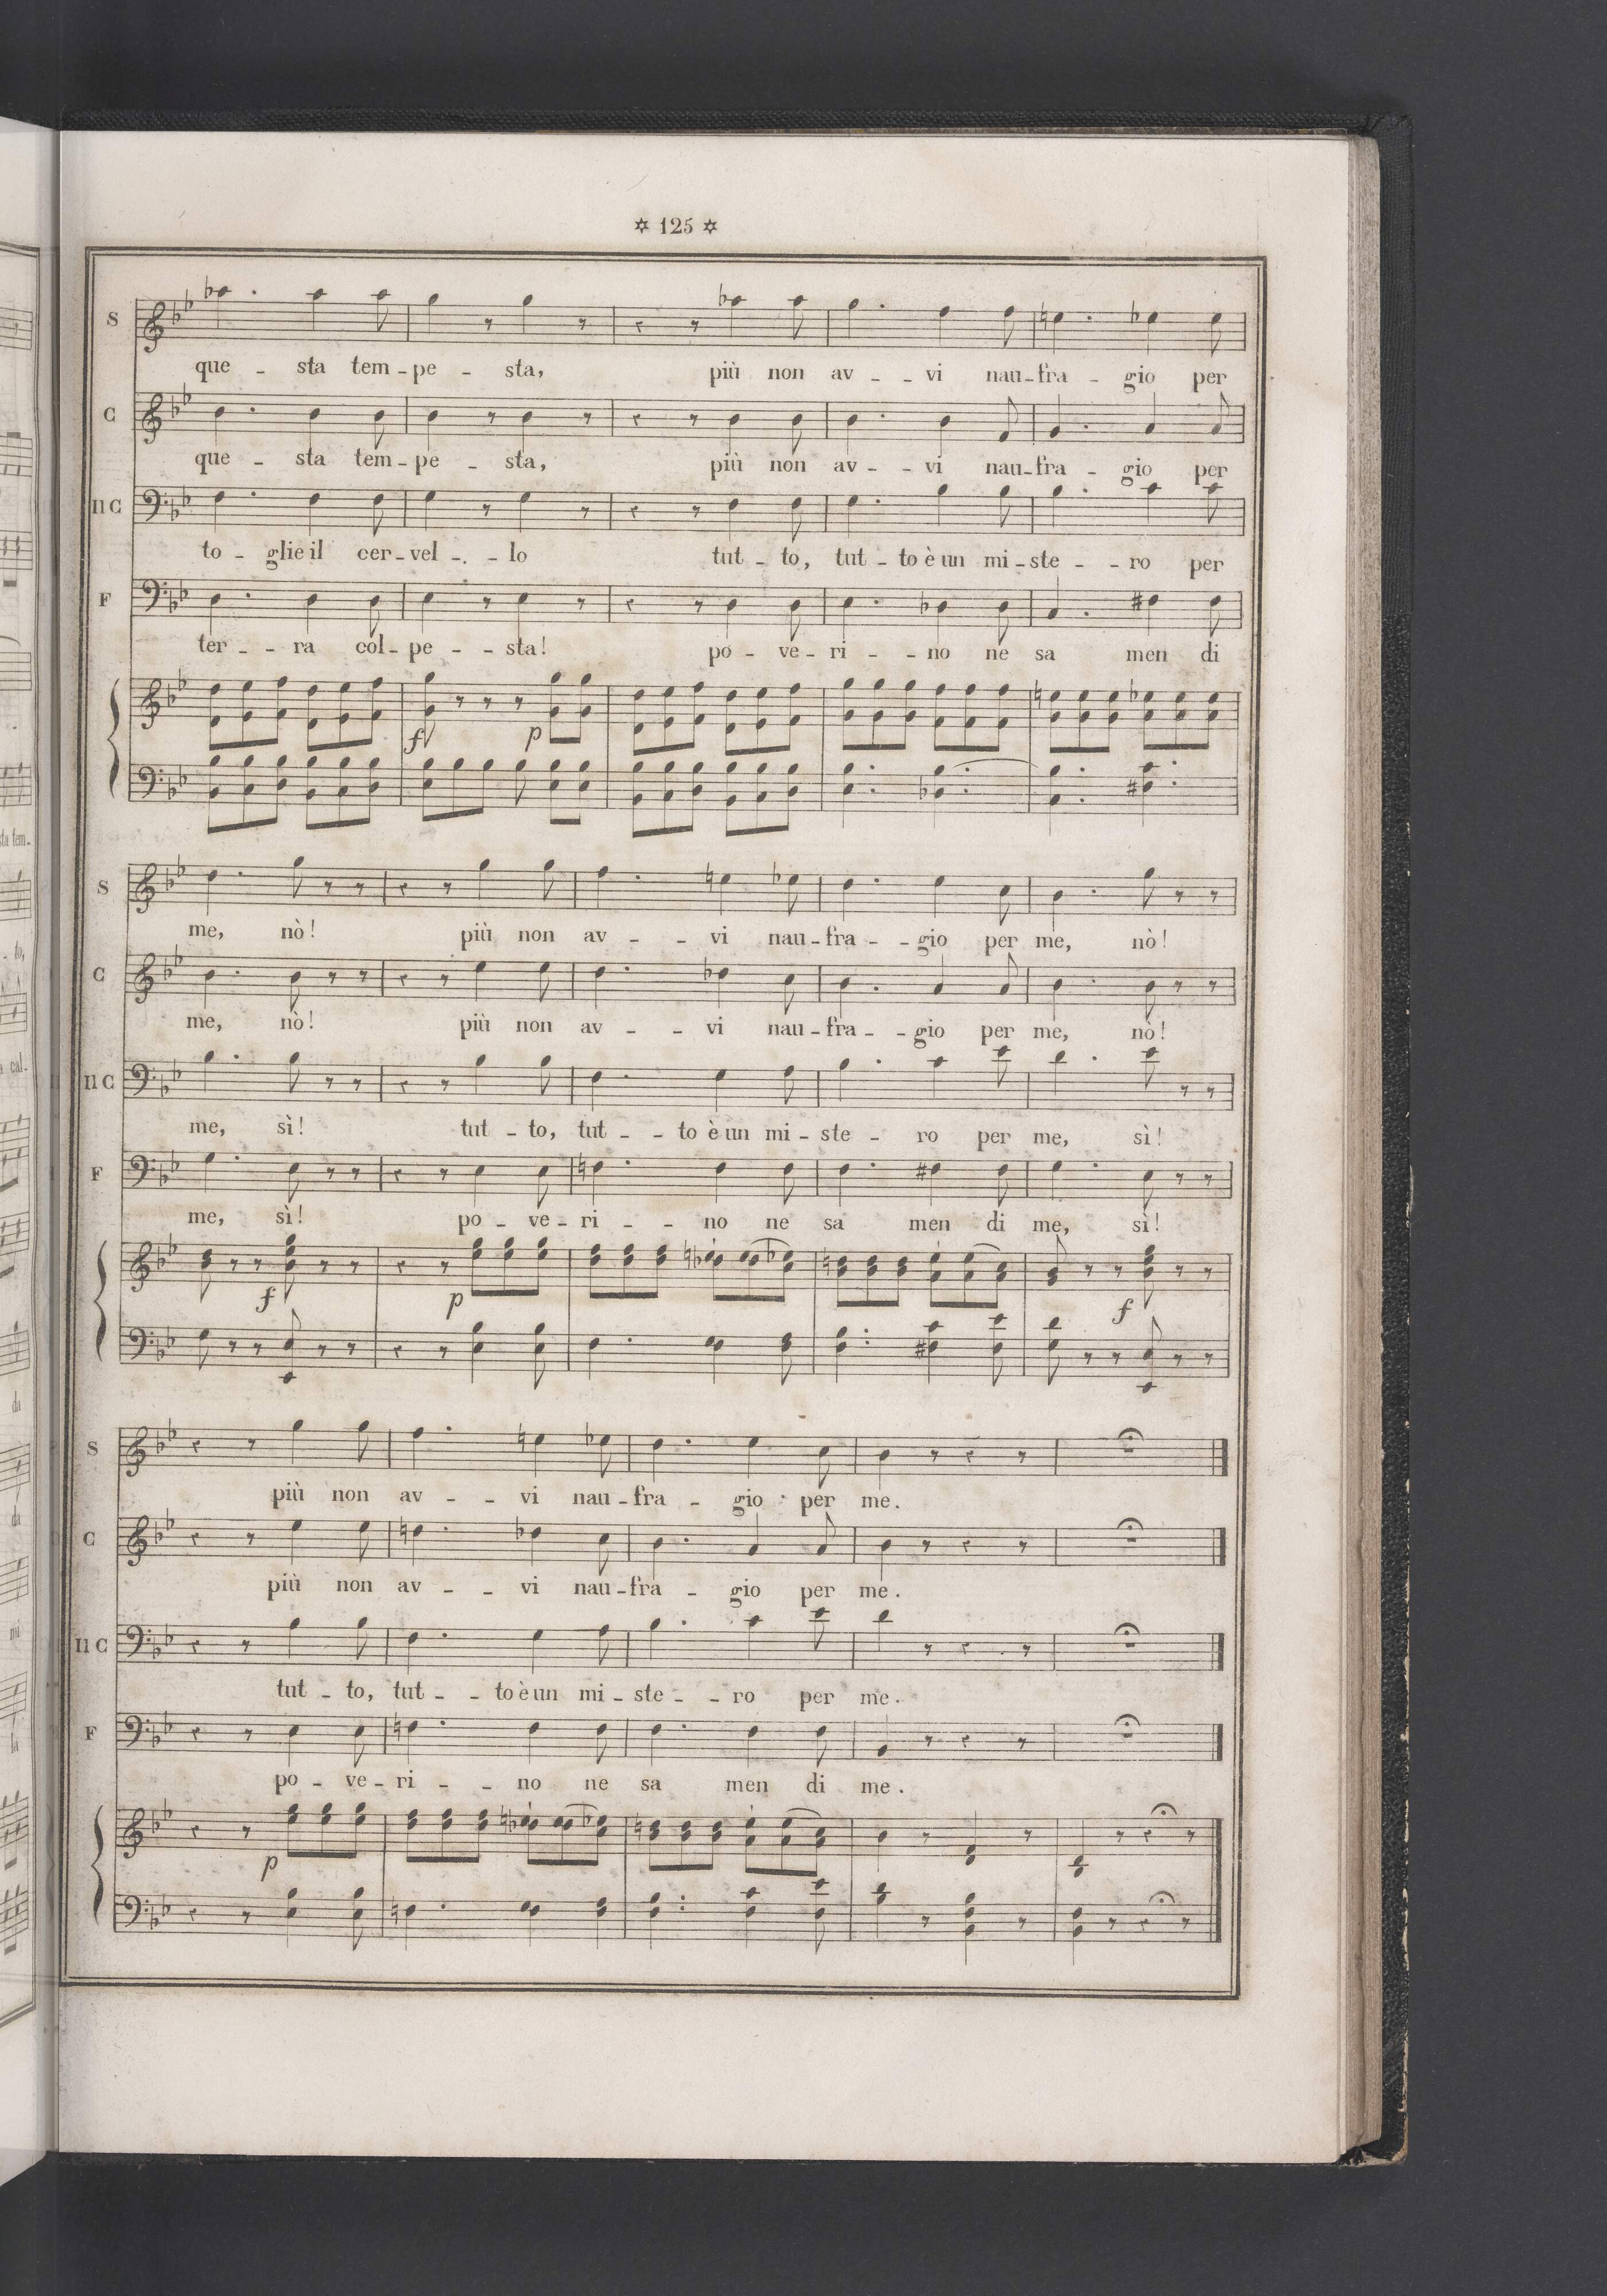 ✡ 125 ✡
S
que - sta tem - pe - sta, più non av - - vi nau - fra - gio per
C
que - sta tem - pe - sta, più non av - - vi nau - fra - gio per
Il C
to - glie il cer - vel - . - lo tut - to, tut - to è un mi - ste - - ro per
F
ter - - ra cal - pe - - sta! po - ve - ri - - no ne sa men di
f p
S
me, nò! più non av - - vi nau - fra - - gio per me, nò!
C
me, nò! più non av - - vi nau - fra - - gio per me, nò!
Il C
me, sì! tut - to, tut - - to è un mi - ste - ro per me, sì!
F
me, sì! po - ve - ri - - no ne sa men di me, sì!
f p f
S
più non av - - vi nau - fra - gio per me.
C
più non av - - vi nau - fra - gio per me.
Il C
tut - to, tut - - to è un mi - ste - - ro per me.
F
po - ve - ri - - no ne sa men di me.
p